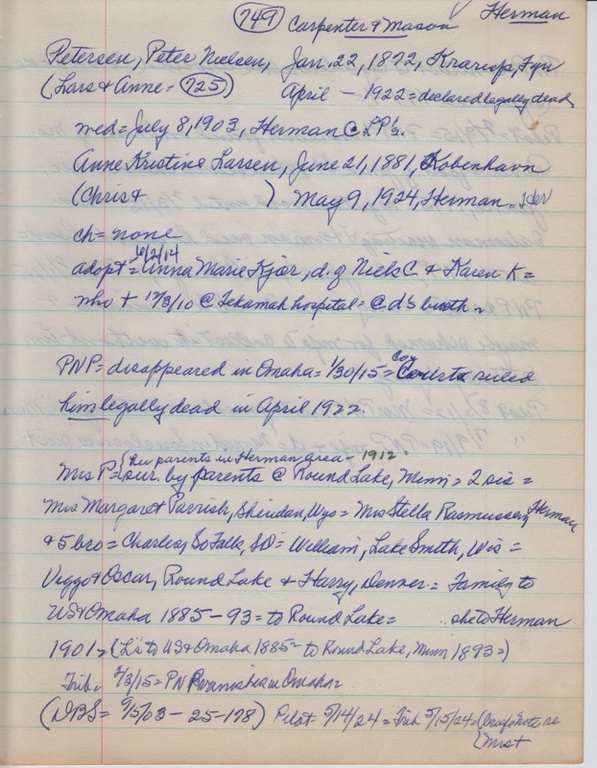 749 Carpenter & Mason Herman
Petersen, Peter Nielsen, Jan. 22, 1872, Krarup, Fyn
(Lars & Anne = 725) April — 1922 = declared legally dead
med = July 8, 1903, Herman @ LP's.
Anne Kristine Larsen, June 21, 1881, Kobenhavn
(Chris & ) May 9, 1924, Herman
ch = none
6/2/14
adopt = Anna Marie Kjar, d. of Niels C. & Karen K =
who + 12/3/10 @ Tekamah hospital = @ d's birth
PNP = disappeared in Omaha = 1/30/15 = Co Courts ruled
him legally dead in April 1922.
her parents in Herman area = 1912.
Mrs P = sur. by parents @ Round Lake, Minn = 2 sis =
Mrs Margaret Parrish, Sheridan, Wyo = Mrs Stella Rasmussen, Herman
& 5 bro = Charles, So Falls, SD = William, Lake Smith, Wis =
Viggo & Oscar, Round Lake & Harry, Denver = Family to
US & Omaha 1885 - 93 = to Round Lake = she to Herman
1901 = (L's to US & Omaha 1885 - to Round Lake, Minn 1893 =)
Trib. 2/3/15 = PN P vanishes in Omaha =
(DBS = 9/5/03 - 25-178) Pilot 5/14/24 = Trib 5/15/24 =
(Mrs +